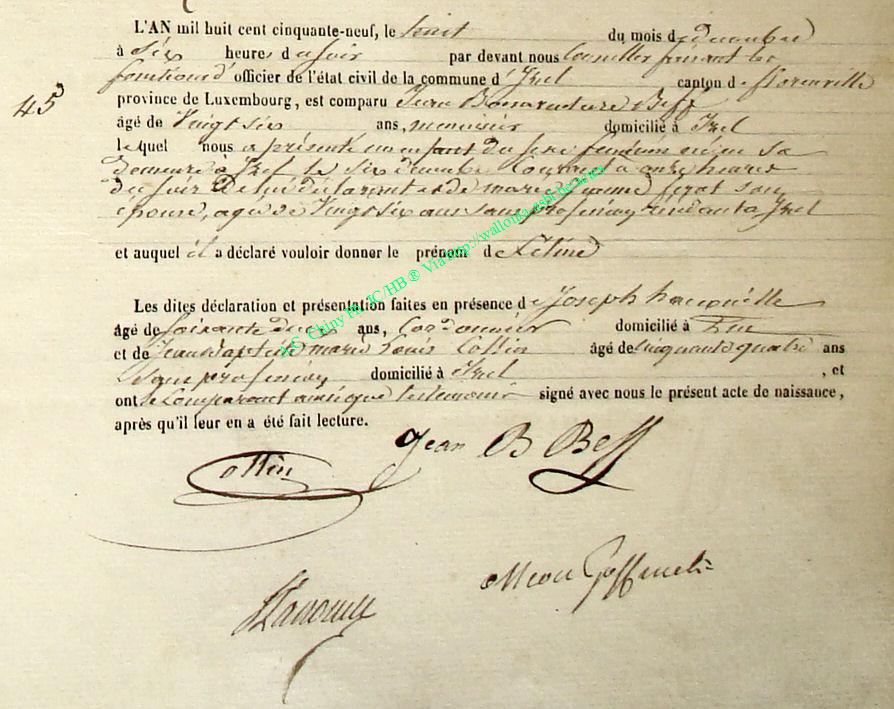 L'AN mil huit cent cinquante-neuf, le huit du mois de decembre
à six heures du soir par devant nous Conseiller faisant les
fonctions d'officier de l'état civil de la commune d'Izel canton de florenville
45
province de Luxembourg, est comparu Jean Bonaventure Beff
âgé de Vingt six ans, menuisier domicilié à Izel
lequel nous a présenté un enfant du sexe féminin né en sa
demeure à Izel le six decembre Courant à onze heures
du soir de lui déclarant et de marie jeanne son
épouse, agée de Vingt six ans sans profession, résidant à Izel
et auquel il a déclaré vouloir donner le prénom de Céline
Les dites déclaration et présentation faites en présence de Joseph
âgé de Soixante deux ans, Cordonnier domicilié à Izel
et de Jean Baptiste marie Louis Collin âgé de cinquante quatre ans
sans profession domicilié à Izel , et
ont le Comparant ainsi que les temoins signé avec nous le présent acte de naissance,
après qu'il leur en a été fait lecture.
Jean B Beff
Collin
AC Chiny Ph JC/HB ® Via http://wallonia-asbl.be